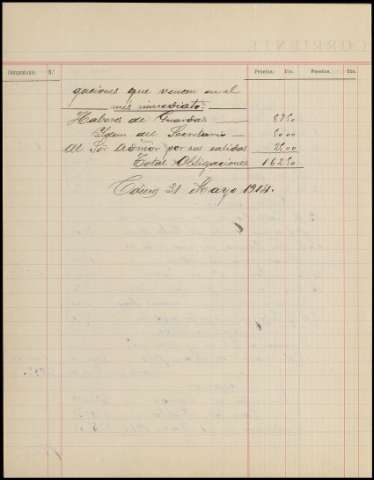 Pesetas. Cts. Pesetas. Cts.
gaciones que vencen en el
mes inmediato.
Haberes de Guardas 8750
Idem del Secretario 50 00
Al Sor Admor por sus salidas 25 00
Total Obligaciones 162 50
31 Mayo 1914.